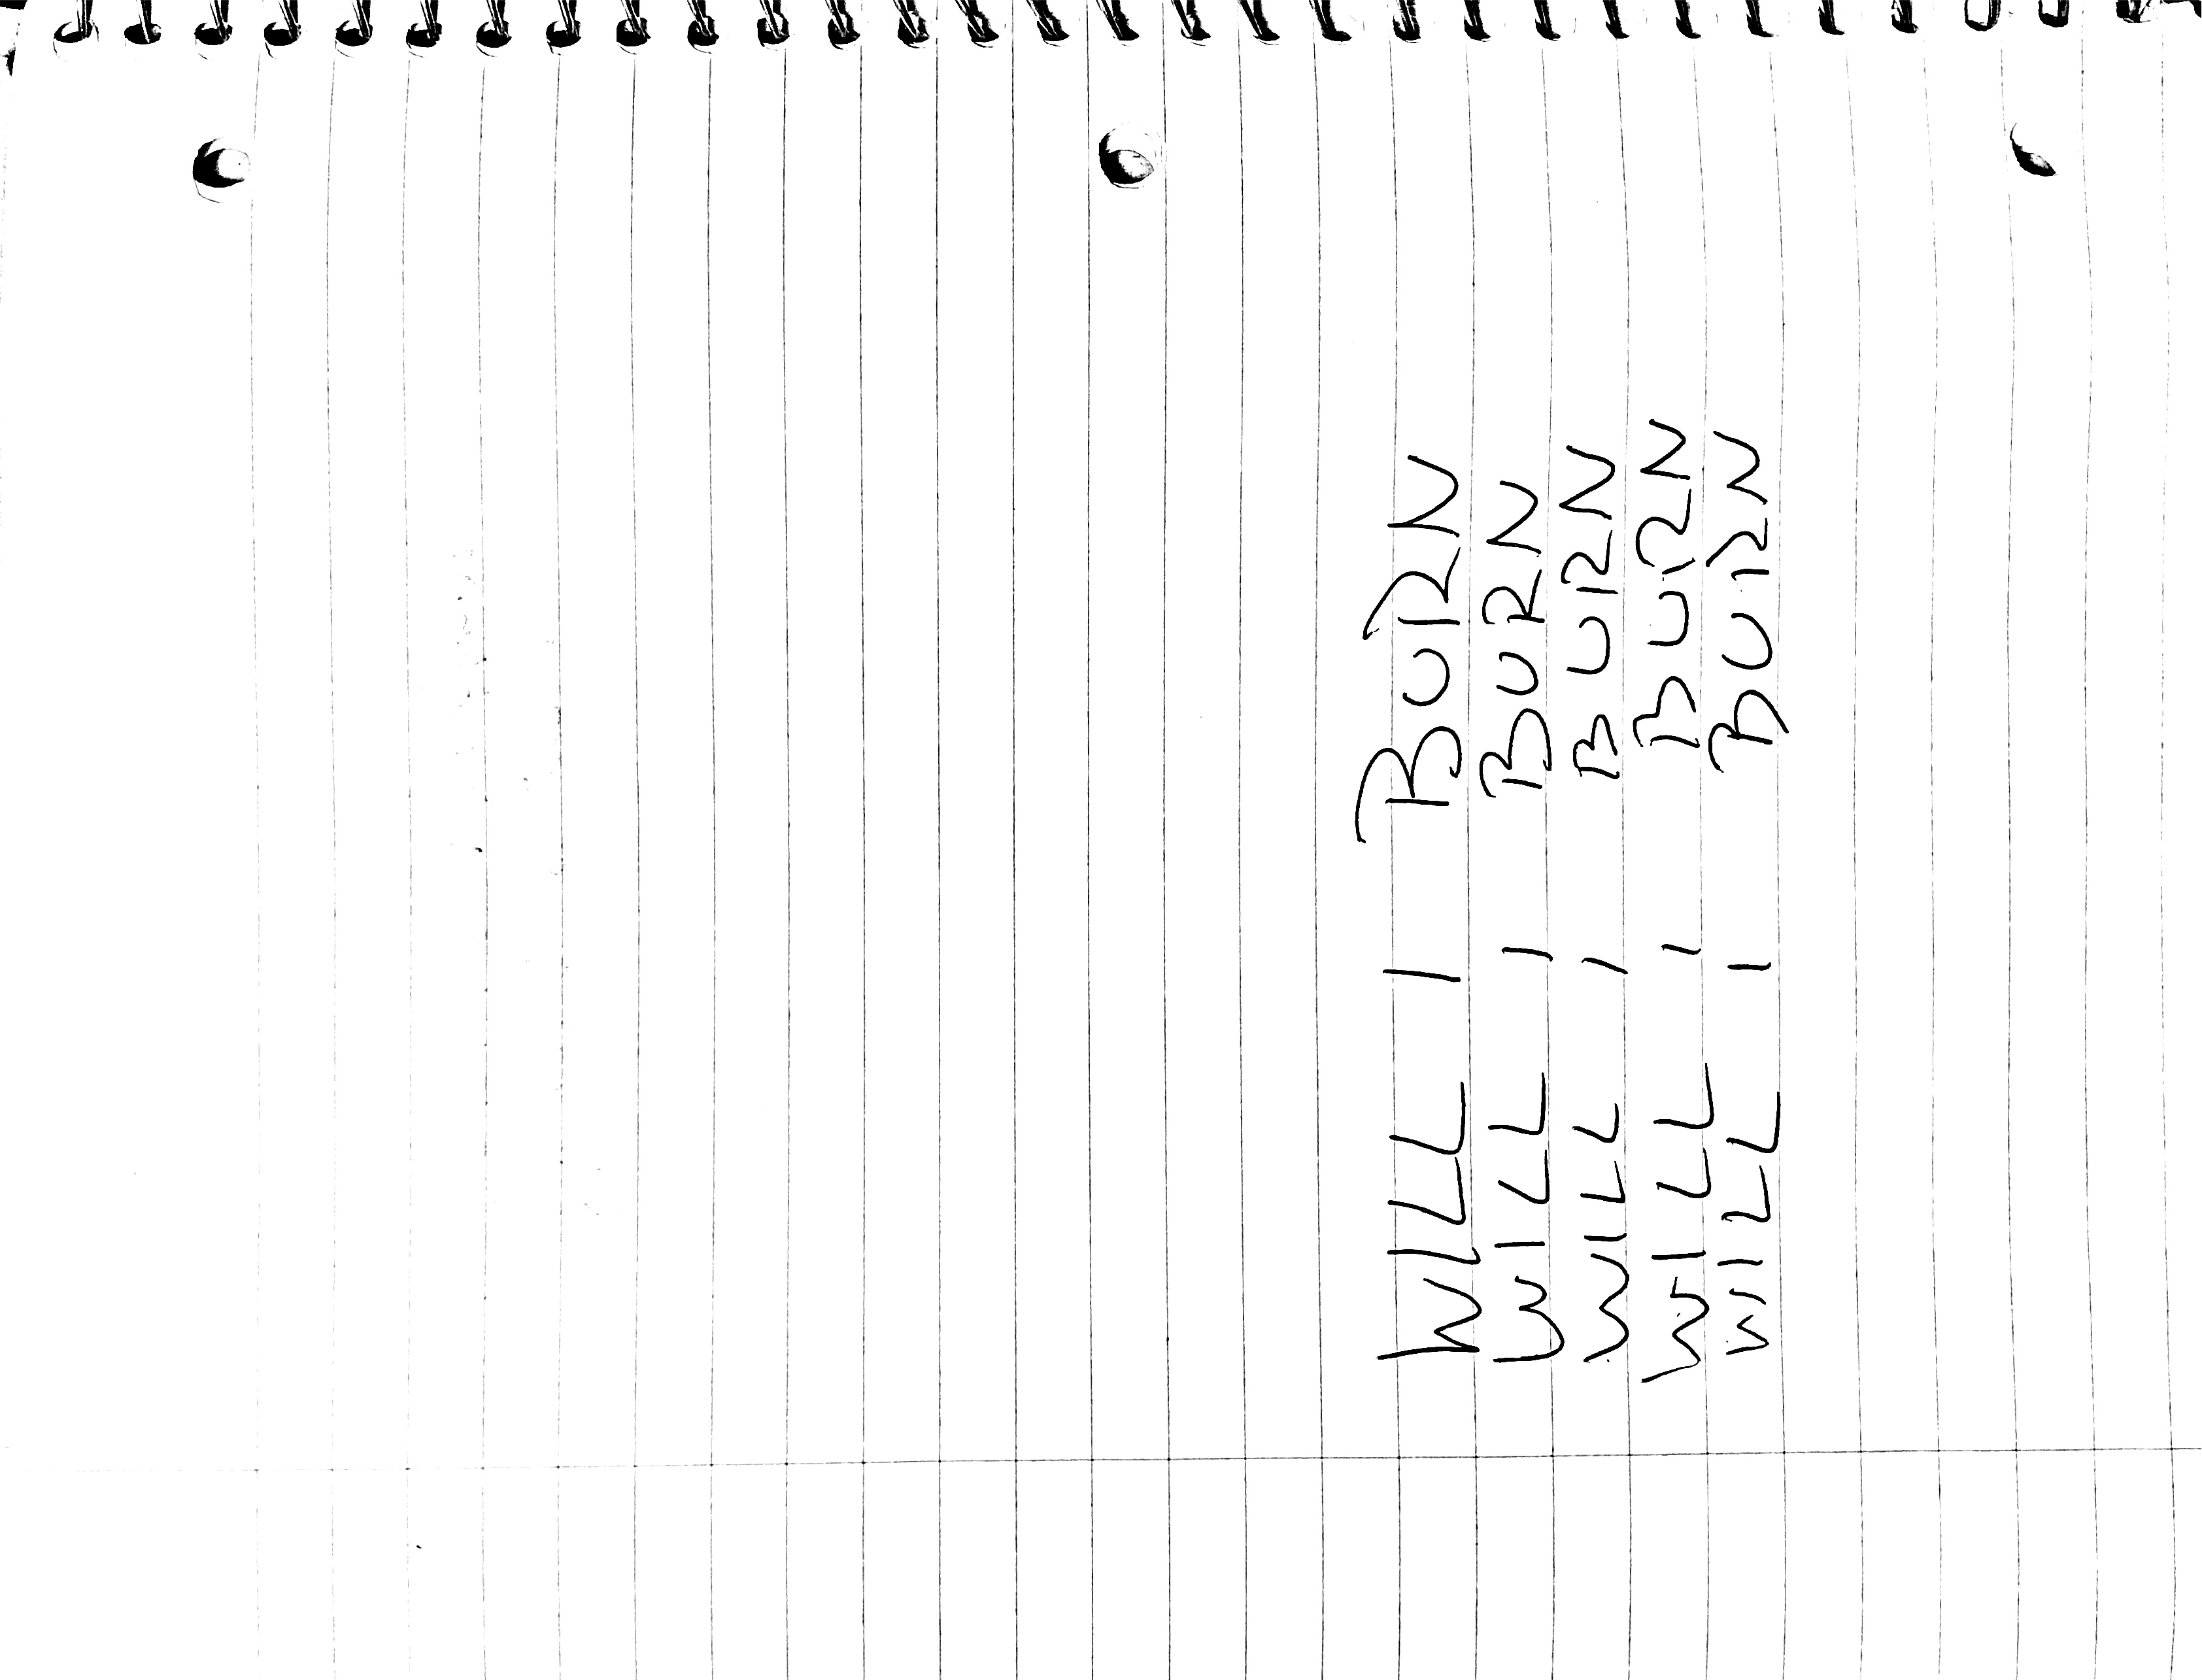 WILL I BURN
WILL I BURN
WILL I BURN
WILL I BURN
WILL I BURN